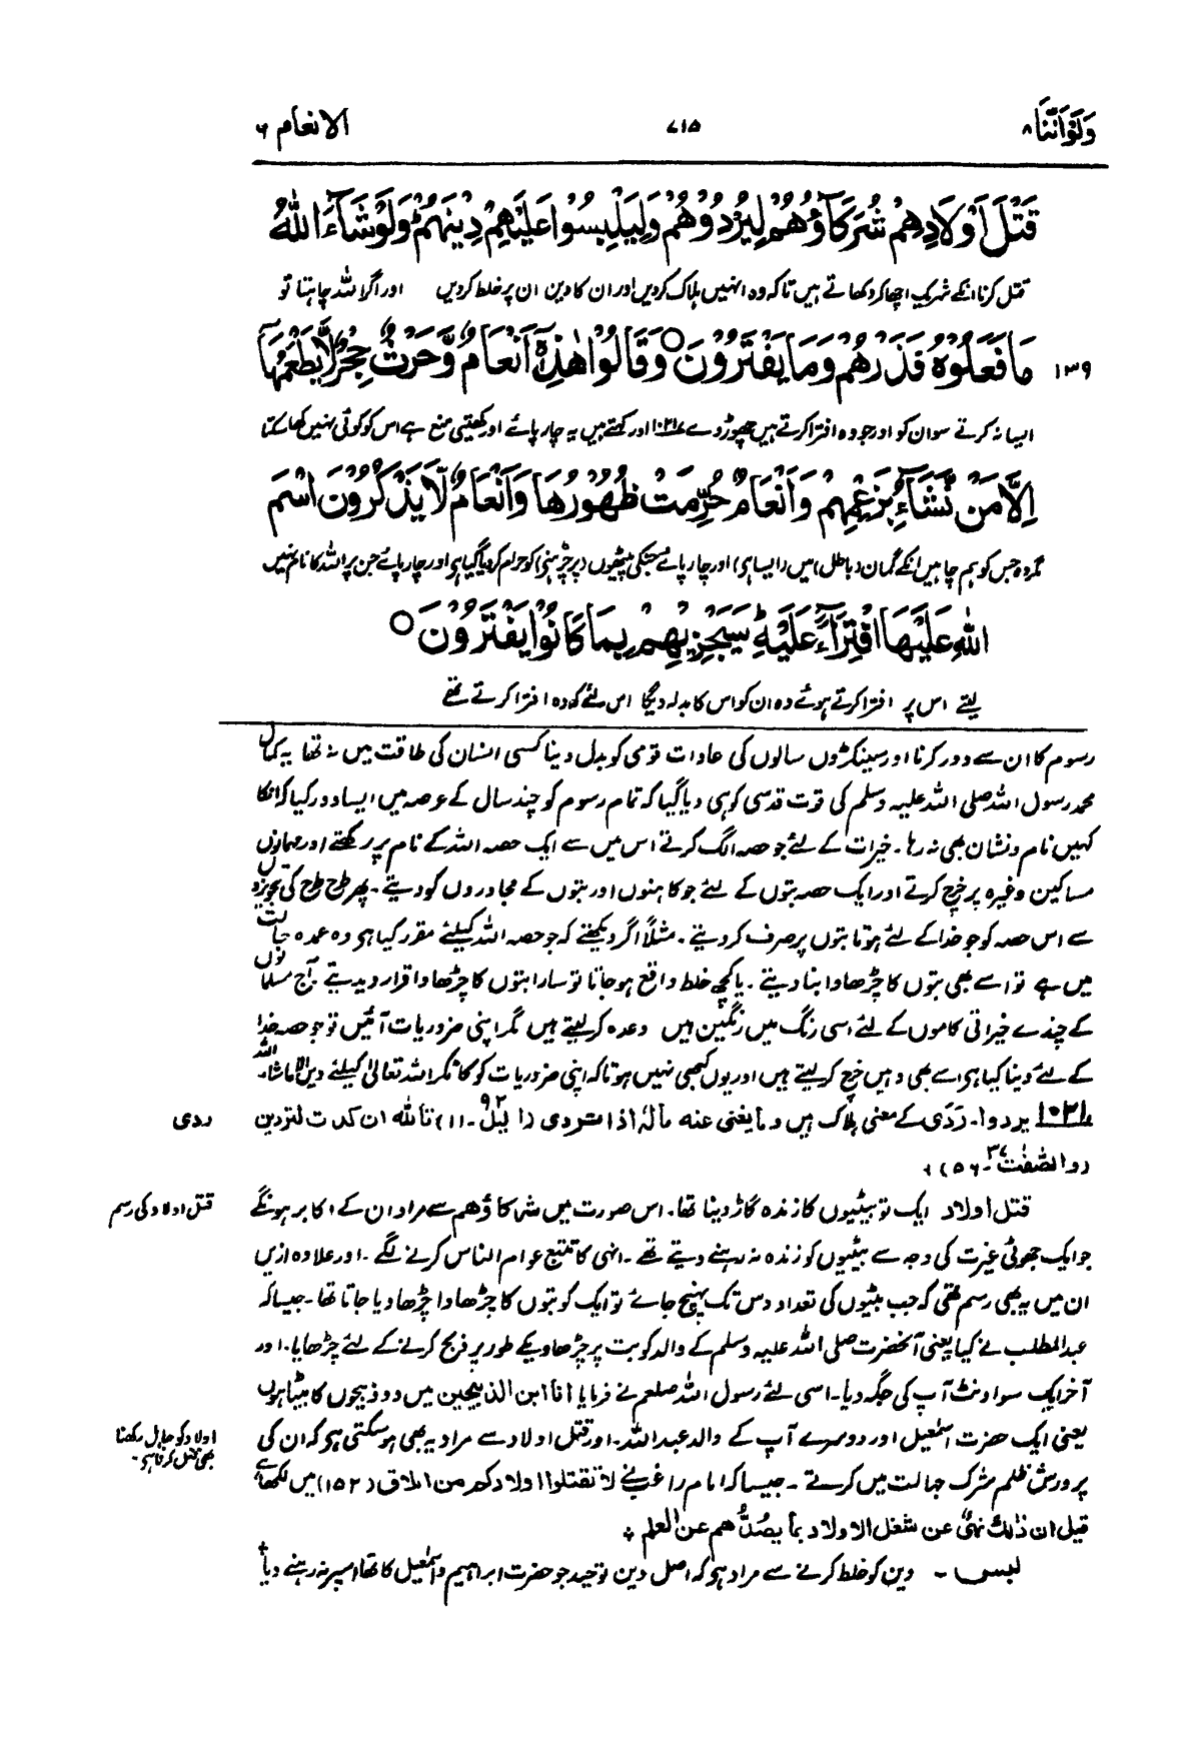 وَلَوْاَنَّنَا ۸
۷۱۵
الانعام ۶
قَتْلَ اَوْلَادِهِمْ شُرَكَآؤُهُمْ لِيُرْدُوْهُمْ وَلِيَلْبِسُوْا عَلَيْهِمْ دِيْنَهُمْ ؕ وَلَوْ شَآءَ اللّٰهُ
قتل کرنا انکے شریک اچھا کر دکھاتے ہیں تاکہ وہ انہیں ہلاک کردیں اور ان کا دین ان پر خلط کردیں اور اگر اللہ چاہتا تو
۱۳۹ مَا فَعَلُوْهُ فَذَرْهُمْ وَمَا يَفْتَرُوْنَ ○ وَقَالُوْا هٰذِهٖٓ اَنْعَامٌ وَّحَرْثٌ حِجْرٌ لَّا يَطْعَمُهَآ
ایسا نہ کرتے سو ان کو اور جو وہ افترا کرتے ہیں چھوڑ دے ۱۰۲۱ اور کہتے ہیں یہ چارپائے اور کھیتی منع ہے اس کو کوئی نہیں کھا سکتا
اِلَّا مَنْ نَّشَآءُ بِزَعْمِهِمْ وَاَنْعَامٌ حُرِّمَتْ ظُهُوْرُهَا وَاَنْعَامٌ لَّا يَذْكُرُوْنَ اسْمَ
مگر وہ جس کو ہم چاہیں انکے گمان (باطل) میں (ایسا ہی) اور چارپائے جنکی پیٹھوں (پر چڑھنے) کو حرام کر دیا گیا ہو اور چارپائے جن پر اللہ کا نام نہیں
اللّٰهِ عَلَيْهَا افْتِرَآءً عَلَيْهِ ؕ سَيَجْزِيْهِمْ بِمَا كَانُوْا يَفْتَرُوْنَ ○
لیتے اس پر افترا کرتے ہوئے وہ ان کو اس کا بدلہ دیگا اس لئے کہ وہ افترا کرتے تھے
رسوم کا ان سے دور کرنا اور سینکڑوں سالوں کی عادات قومی کو بدل دینا کسی انسان کی طاقت میں نہ تھا یہ کمال
محمد رسول اللہ صلی اللہ علیہ وسلم کی قوت قدسی کو ہی دیا گیا کہ تمام رسوم کو چند سال کے عرصہ میں ایسا دور کیا کہ انکا
کہیں نام و نشان بھی نہ رہا۔ خیرات کے لئے جو حصہ الگ کرتے اس میں سے ایک حصہ اللہ کے نام پر رکھتے اور مہمانوں
مساکین وغیرہ پر خرچ کرتے اور ایک حصہ بتوں کے لئے جو کاہنوں اور بتوں کے مجاوروں کو دیتے۔ پھر طرح طرح کی تجویزوں
سے اس حصہ کو جو خدا کے لئے ہوتا بتوں پر صرف کردیتے۔ مثلاً اگر دیکھتے کہ جو حصہ اللہ کیلئے مقرر کیا ہو وہ عمدہ حالت
میں ہے تو اسے بھی بتوں کا چڑھاوا بنا دیتے۔ یا کچھ خلط واقع ہو جاتا تو سارا بتوں کا چڑھاوا قرار دیدیتے۔ آج مسلمانوں
کے چندے خیراتی کاموں کے لئے اسی رنگ میں رنگین ہیں وعدہ کر لیتے ہیں مگر اپنی ضروریات آئیں تو جو حصہ خدا
کے لئے دینا کیا ہو اسے بھی وہیں خرچ کر لیتے ہیں اور یوں کبھی نہیں ہوتا کہ اپنی ضروریات کو کاٹ کر اللہ تعالیٰ کیلئے دیں الا ماشاءاللہ۔
۱۰۲۱ یردوا۔ رَدَی کے معنی ہلاک ہیں وما یغنی عنہ مالہٗ اذا تردی (الیل ۹۲۔۱۱) تاللہ ان کدت لتردین
(والصّٰفّٰت ۳۷۔ ۵۶) ٭
ردی
قتل اولاد ایک تو بیٹیوں کا زندہ گاڑ دینا تھا۔ اس صورت میں شرکاؤھم سے مراد ان کے اکابر ہونگے
قتل اولاد کی رسم
جو ایک جھوٹی غیرت کی وجہ سے بیٹیوں کو زندہ نہ رہنے دیتے تھے۔ انہی کا تتبع عوام الناس کرنے لگے۔ اور علاوہ ازیں
ان میں یہ بھی رسم تھی کہ جب بیٹیوں کی تعداد دس تک پہنچ جائے تو ایک کو بتوں کا چڑھاوا چڑھا دیا جاتا تھا۔ جیسا کہ
عبدالمطلب نے کیا یعنی آنحضرت صلی اللہ علیہ وسلم کے والد کو بت پر چڑھاوے کے طور پر ذبح کرنے کے لئے چڑھایا۔ اور
آخر ایک سو اونٹ آپ کی جگہ دیا۔ اسی لئے رسول اللہ صلعم نے فرمایا انا ابن الذبیحین میں دو ذبیحوں کا بیٹا ہوں
یعنی ایک حضرت اسمٰعیل اور دوسرے آپ کے والد عبداللہ۔ اور قتل اولاد سے مراد یہ بھی ہو سکتی ہو کہ ان کی
اولاد کو جاہل رکھنا
بھی قتل کرنا ہو۔
پرورش ظلم شرک جہالت میں کرتے۔ جیسا کہ امام راغب نے لا تقتلوا اولادکم من املاق (۱۵۲) میں لکھا ہے
قیل ان ذٰلک نھیٌ عن شغل الاولاد بما یصُدُّھم عن العلم ٭
لبس۔ دین کو خلط کرنے سے مراد ہو کہ اصل دین توحید جو حضرت ابراہیم و اسمٰعیل کا تھا اسپر نہ رہنے دیا ٭